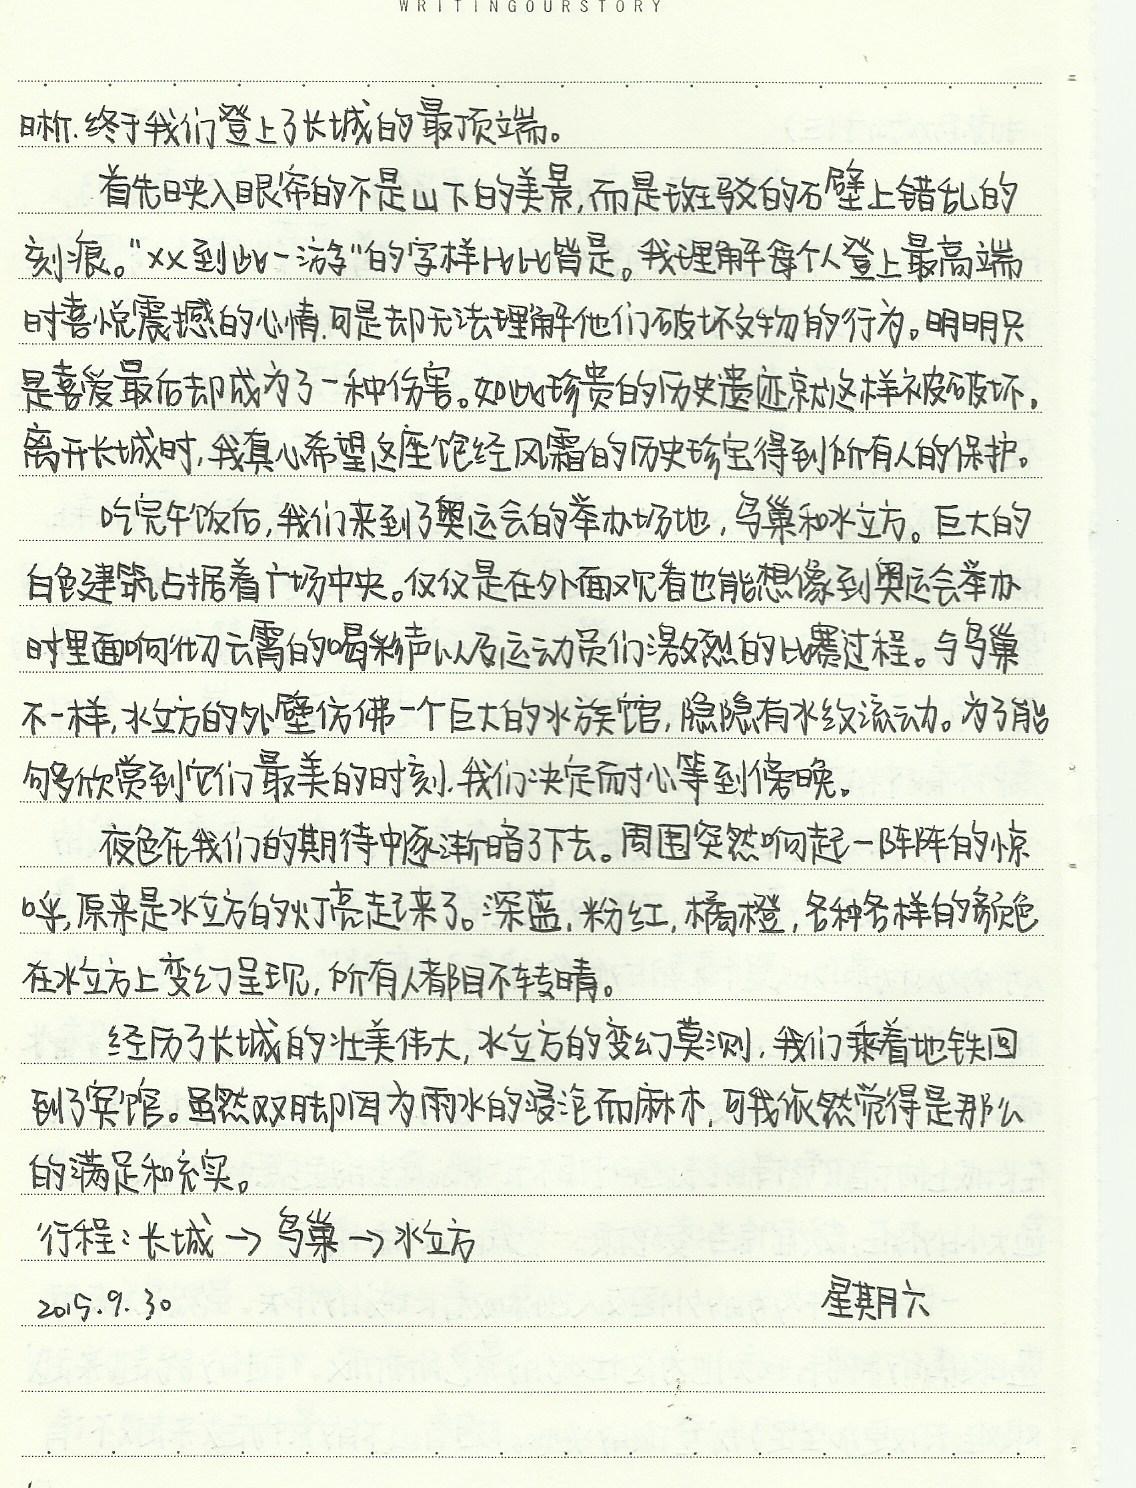 WRITINGOURSTORY
晰.终于我们登上了长城的最顶端。
首先映入眼帘的不是山下的美景,而是斑驳的石壁上错乱的
刻痕。“XX到此一游”的字样比比皆是。我理解每个人登上最高端
时喜悦震撼的心情,可是却无法理解他们破坏文物的行为。明明只
是喜爱最后却成为了一种伤害。如此珍贵的历史遗迹就这样被破坏.
离开长城时,我真心希望这座饱经风霜的历史珍宝得到所有人的保护。
吃完午饭后,我们来到了奥运会的举办场地,鸟巢和水立方。巨大的
白色建筑占据着广场中央。仅仅是在外面观看也能想像到奥运会举办
时里面响彻云霄的喝彩声以及运动员们激烈的比赛过程。与鸟巢
不一样,水立方的外壁仿佛一个巨大的水族馆,隐隐有水纹流动。为了能
够欣赏到它们最美的时刻,我们决定耐心等到傍晚。
夜色在我们的期待中逐渐暗了下去。周围突然响起一阵阵的惊
呼,原来是水立方的灯亮起来了。深蓝,粉红,橘橙,各种各样的颜色
在水立方上变幻呈现,所有人都目不转睛。
经历了长城的壮美伟大,水立方的变幻莫测,我们乘着地铁回
到了宾馆。虽然双脚因为雨水的浸泡而麻木,可我依然觉得是那么
的满足和充实。
行程:长城→鸟巢→水立方
2015.9.30 星期六